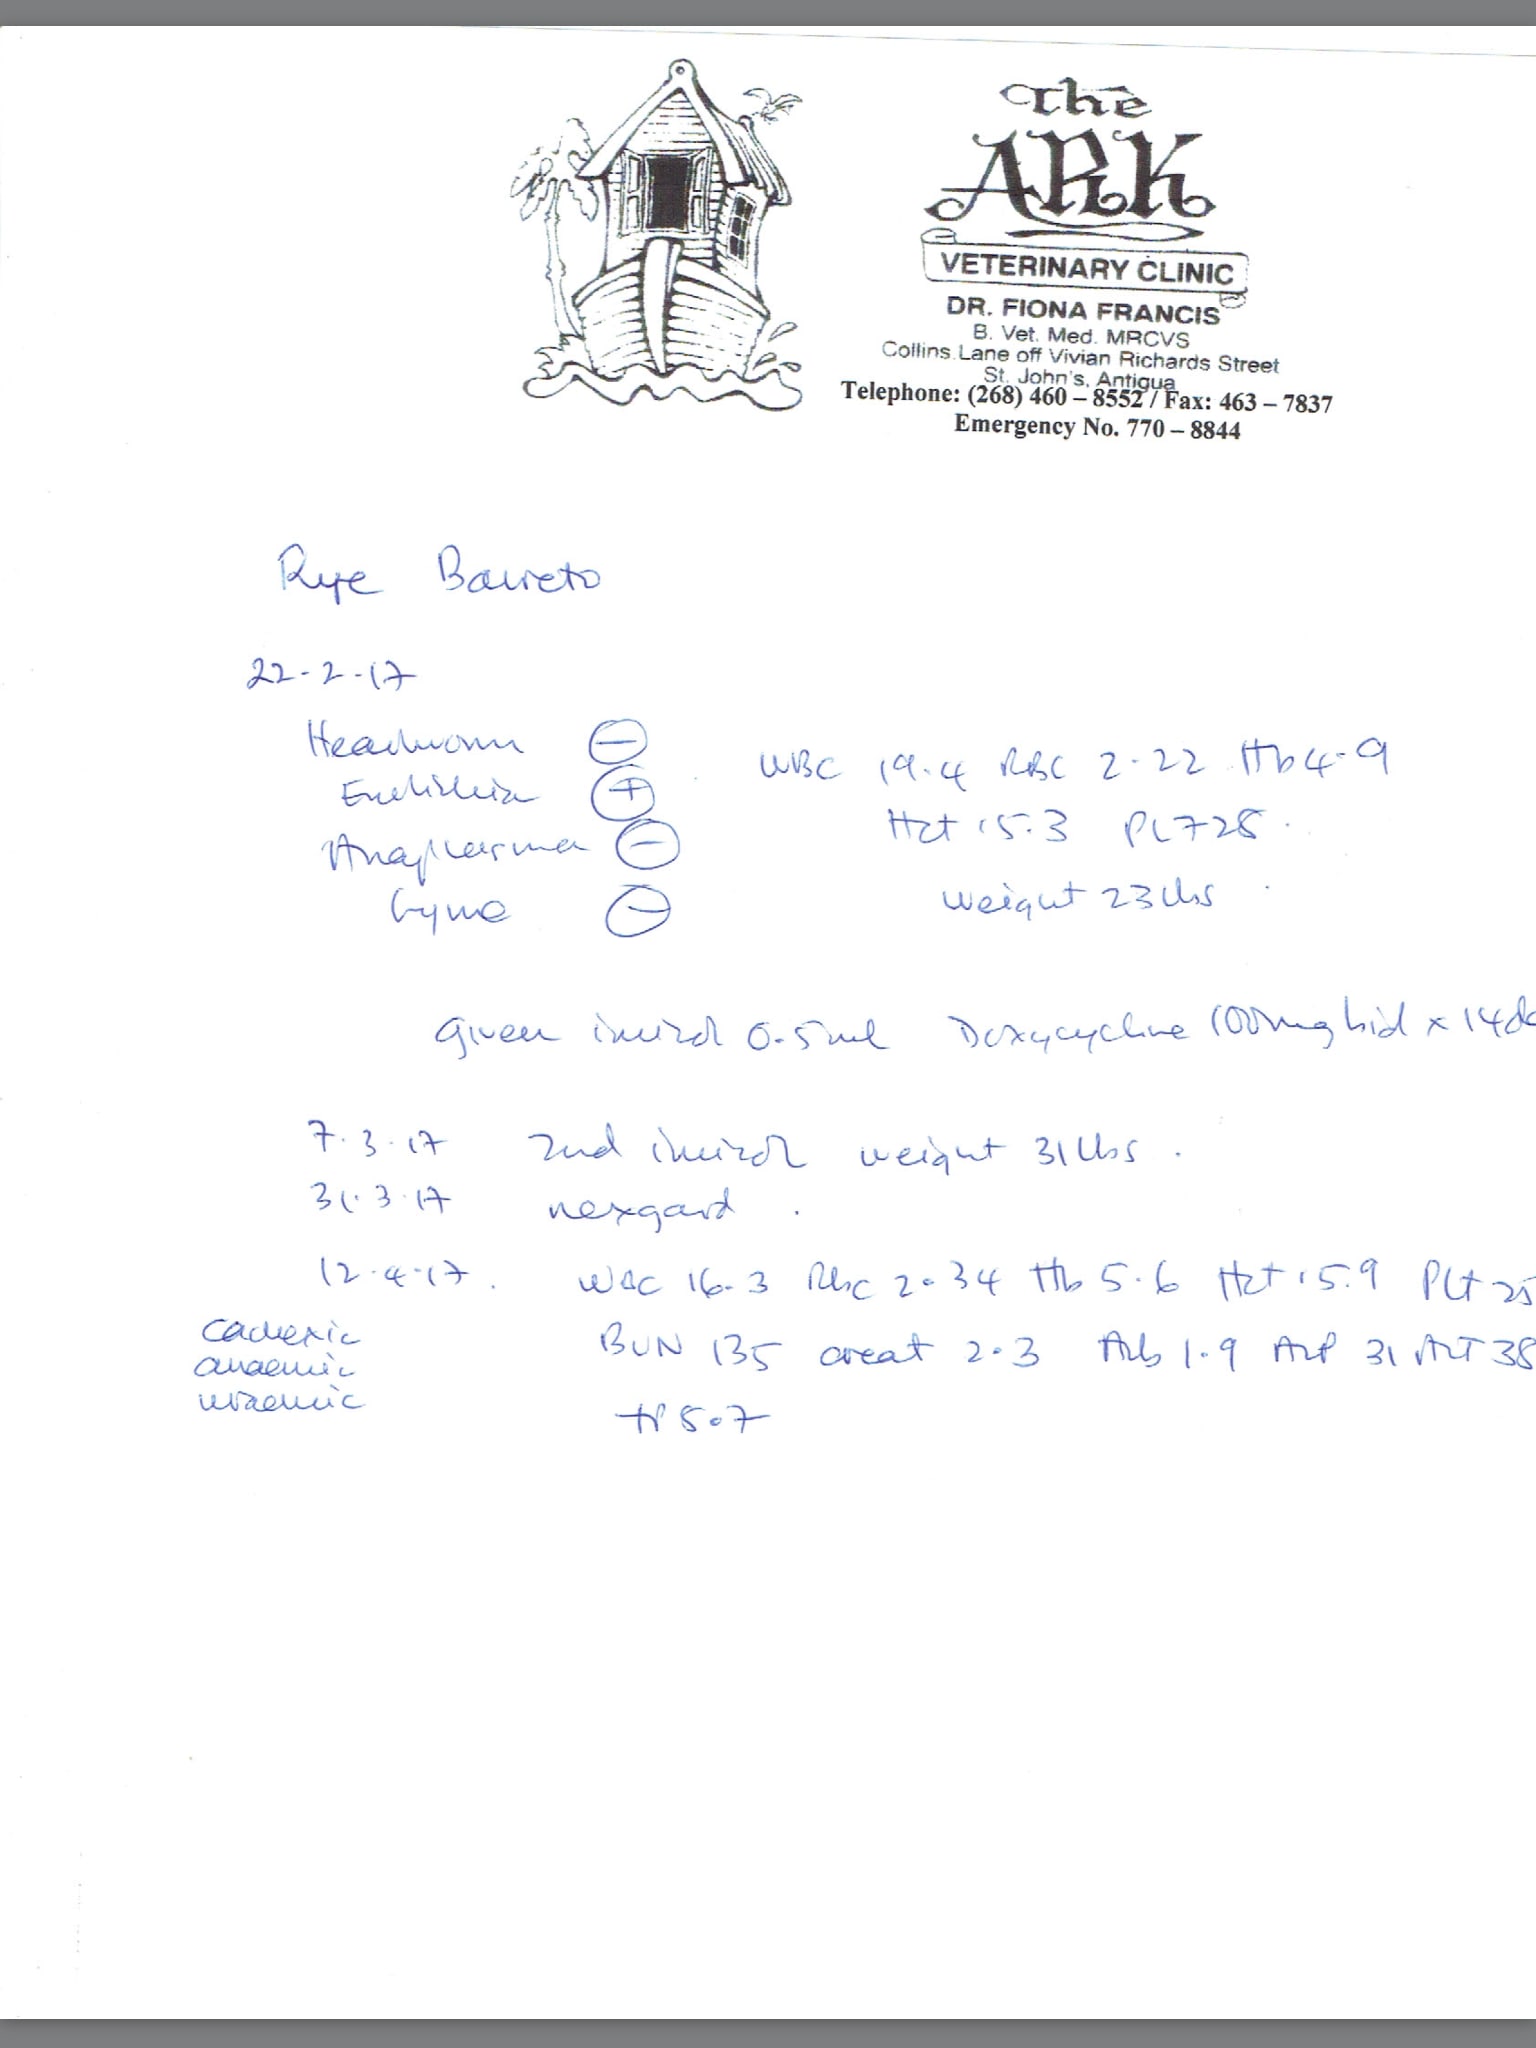 The
ARK
VETERINARY CLINIC
DR. FIONA FRANCIS
B. Vet. Med. MRCVS
Collins Lane off Vivian Richards Street
St. John's, Antigua
Telephone: (268) 460 – 8552 / Fax: 463 – 7837
Emergency No. 770 – 8844
Rye Barreto
22-2-17
Heartworm ⊖
Ehrlichia ⊕ WBC 19.4 RBC 2.22 Hb 4.9
Anaplasma ⊖ Hct 15.3
Lyme ⊖ weight 23 lbs
Given imizol 0.5ml Doxycycline 100mg bid x 14
7.3.17 2nd imizol weight 31 lbs.
31.3.17 nexgard.
12.4.17. WBC 16.3 Rbc 2.34 Hb 5.6 Hct 15.9 Plt
cachexic BUN 135 creat 2.3 Alb 1.9 ALP 31 ALT 38
anaemic
uraemic TP 5.7